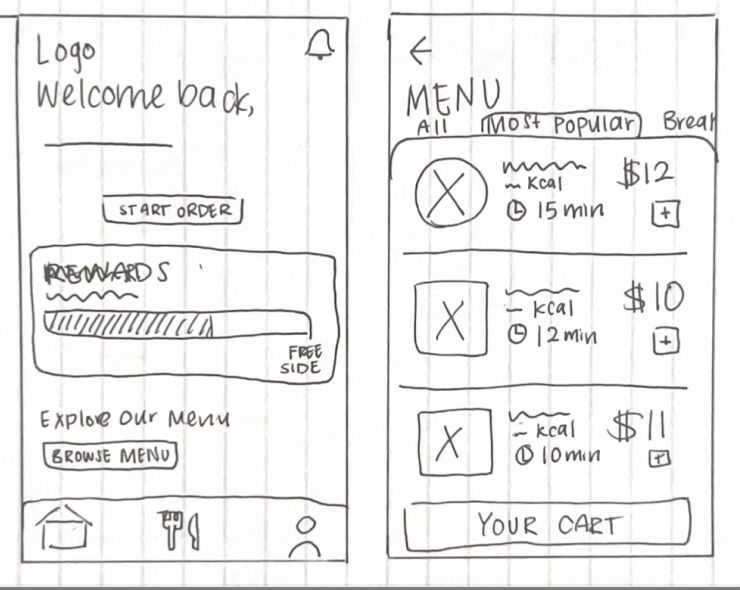 Logo
Welcome back,
START ORDER
REWARDS
FREE
SIDE
Explore Our Menu
BROWSE MENU
MENU
All
Most Popular
Break
$12
kcal
15 min
+
$10
kcal
12 min
+
$11
kcal
10 min
+
YOUR CART